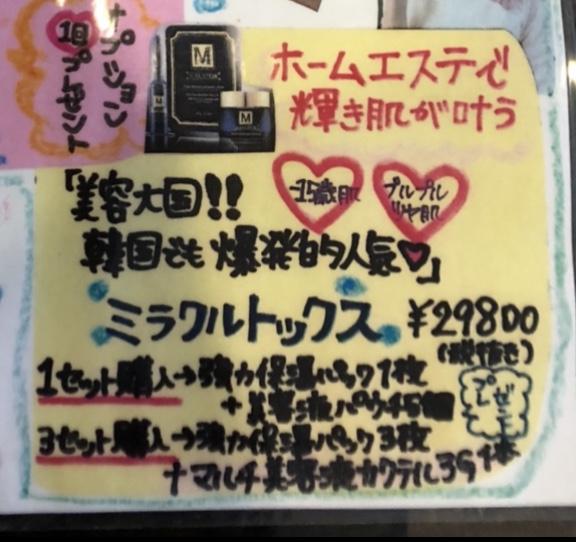 オプション
1回プレゼント
M
ホームエステで
輝き肌が叶う
-15歳肌
プルプル
ツヤ肌
「美容大国!!
韓国でも爆発的人気♡」
ミラクルトックス
¥29800
(税抜き)
1セット購入→強力保湿パック1枚
+美容液パウチ45個
プレゼント
3セット購入→強力保湿パック3枚
+マルチ美容液カクテル39 1本